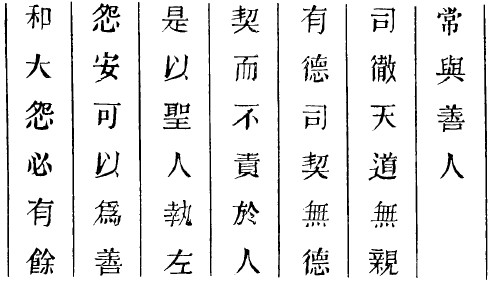 和大怨必有餘
怨安可以爲善
是以聖人執左
契而不責於人
有德司契無德
司徹天道無親
常與善人